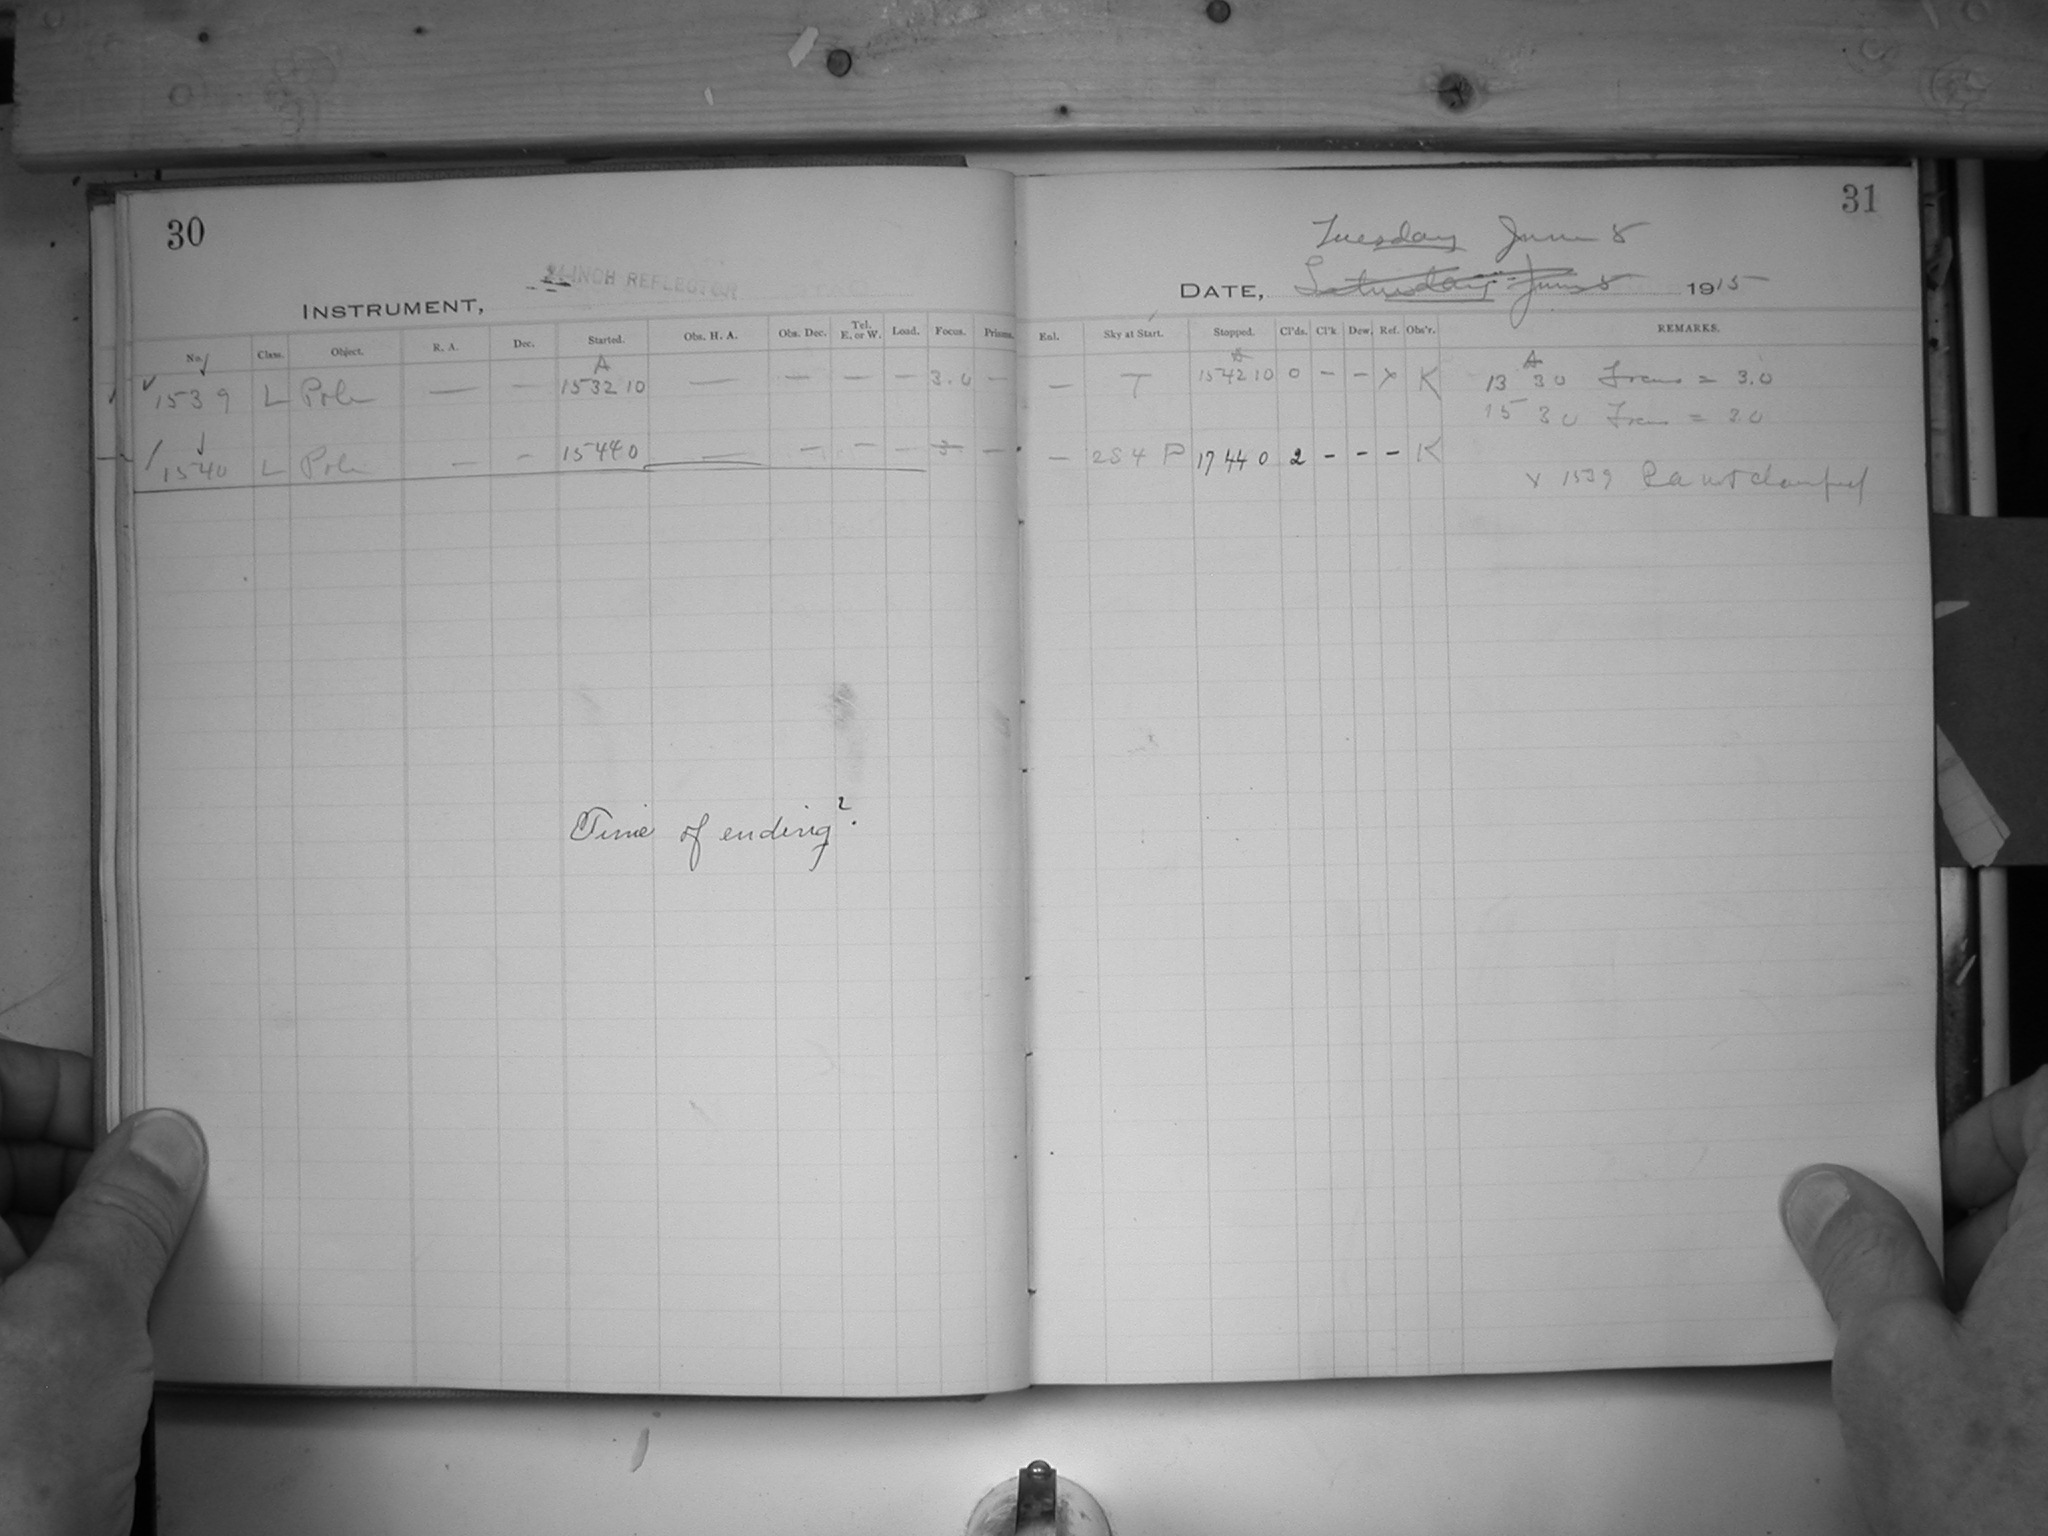 30
24-INCH REFLECTOR
INSTRUMENT,
No. Class. Object. R. A. Dec. Started. Obs. H. A. Obs. Dec. Tel. E. or W. Load. Focus. Prisms.
A
1539 L Pole — — 15 32 10 — — — — 3.0 —
1540 L Pole — — 15 44 0 — — — — 3 —
Time of ending?
31
Tuesday June 8
DATE, Saturday June 5 1915
Enl. Sky at Start. Stopped. Cl'ds. Cl'k Dew. Ref. Obs'r. REMARKS.
— T 15 42 10 0 - - x K 13 30 Focus = 3.0
15 30 Focus = 3.0
— 2S4 P 17 44 0 2 - - - K
x 1539 not clamped